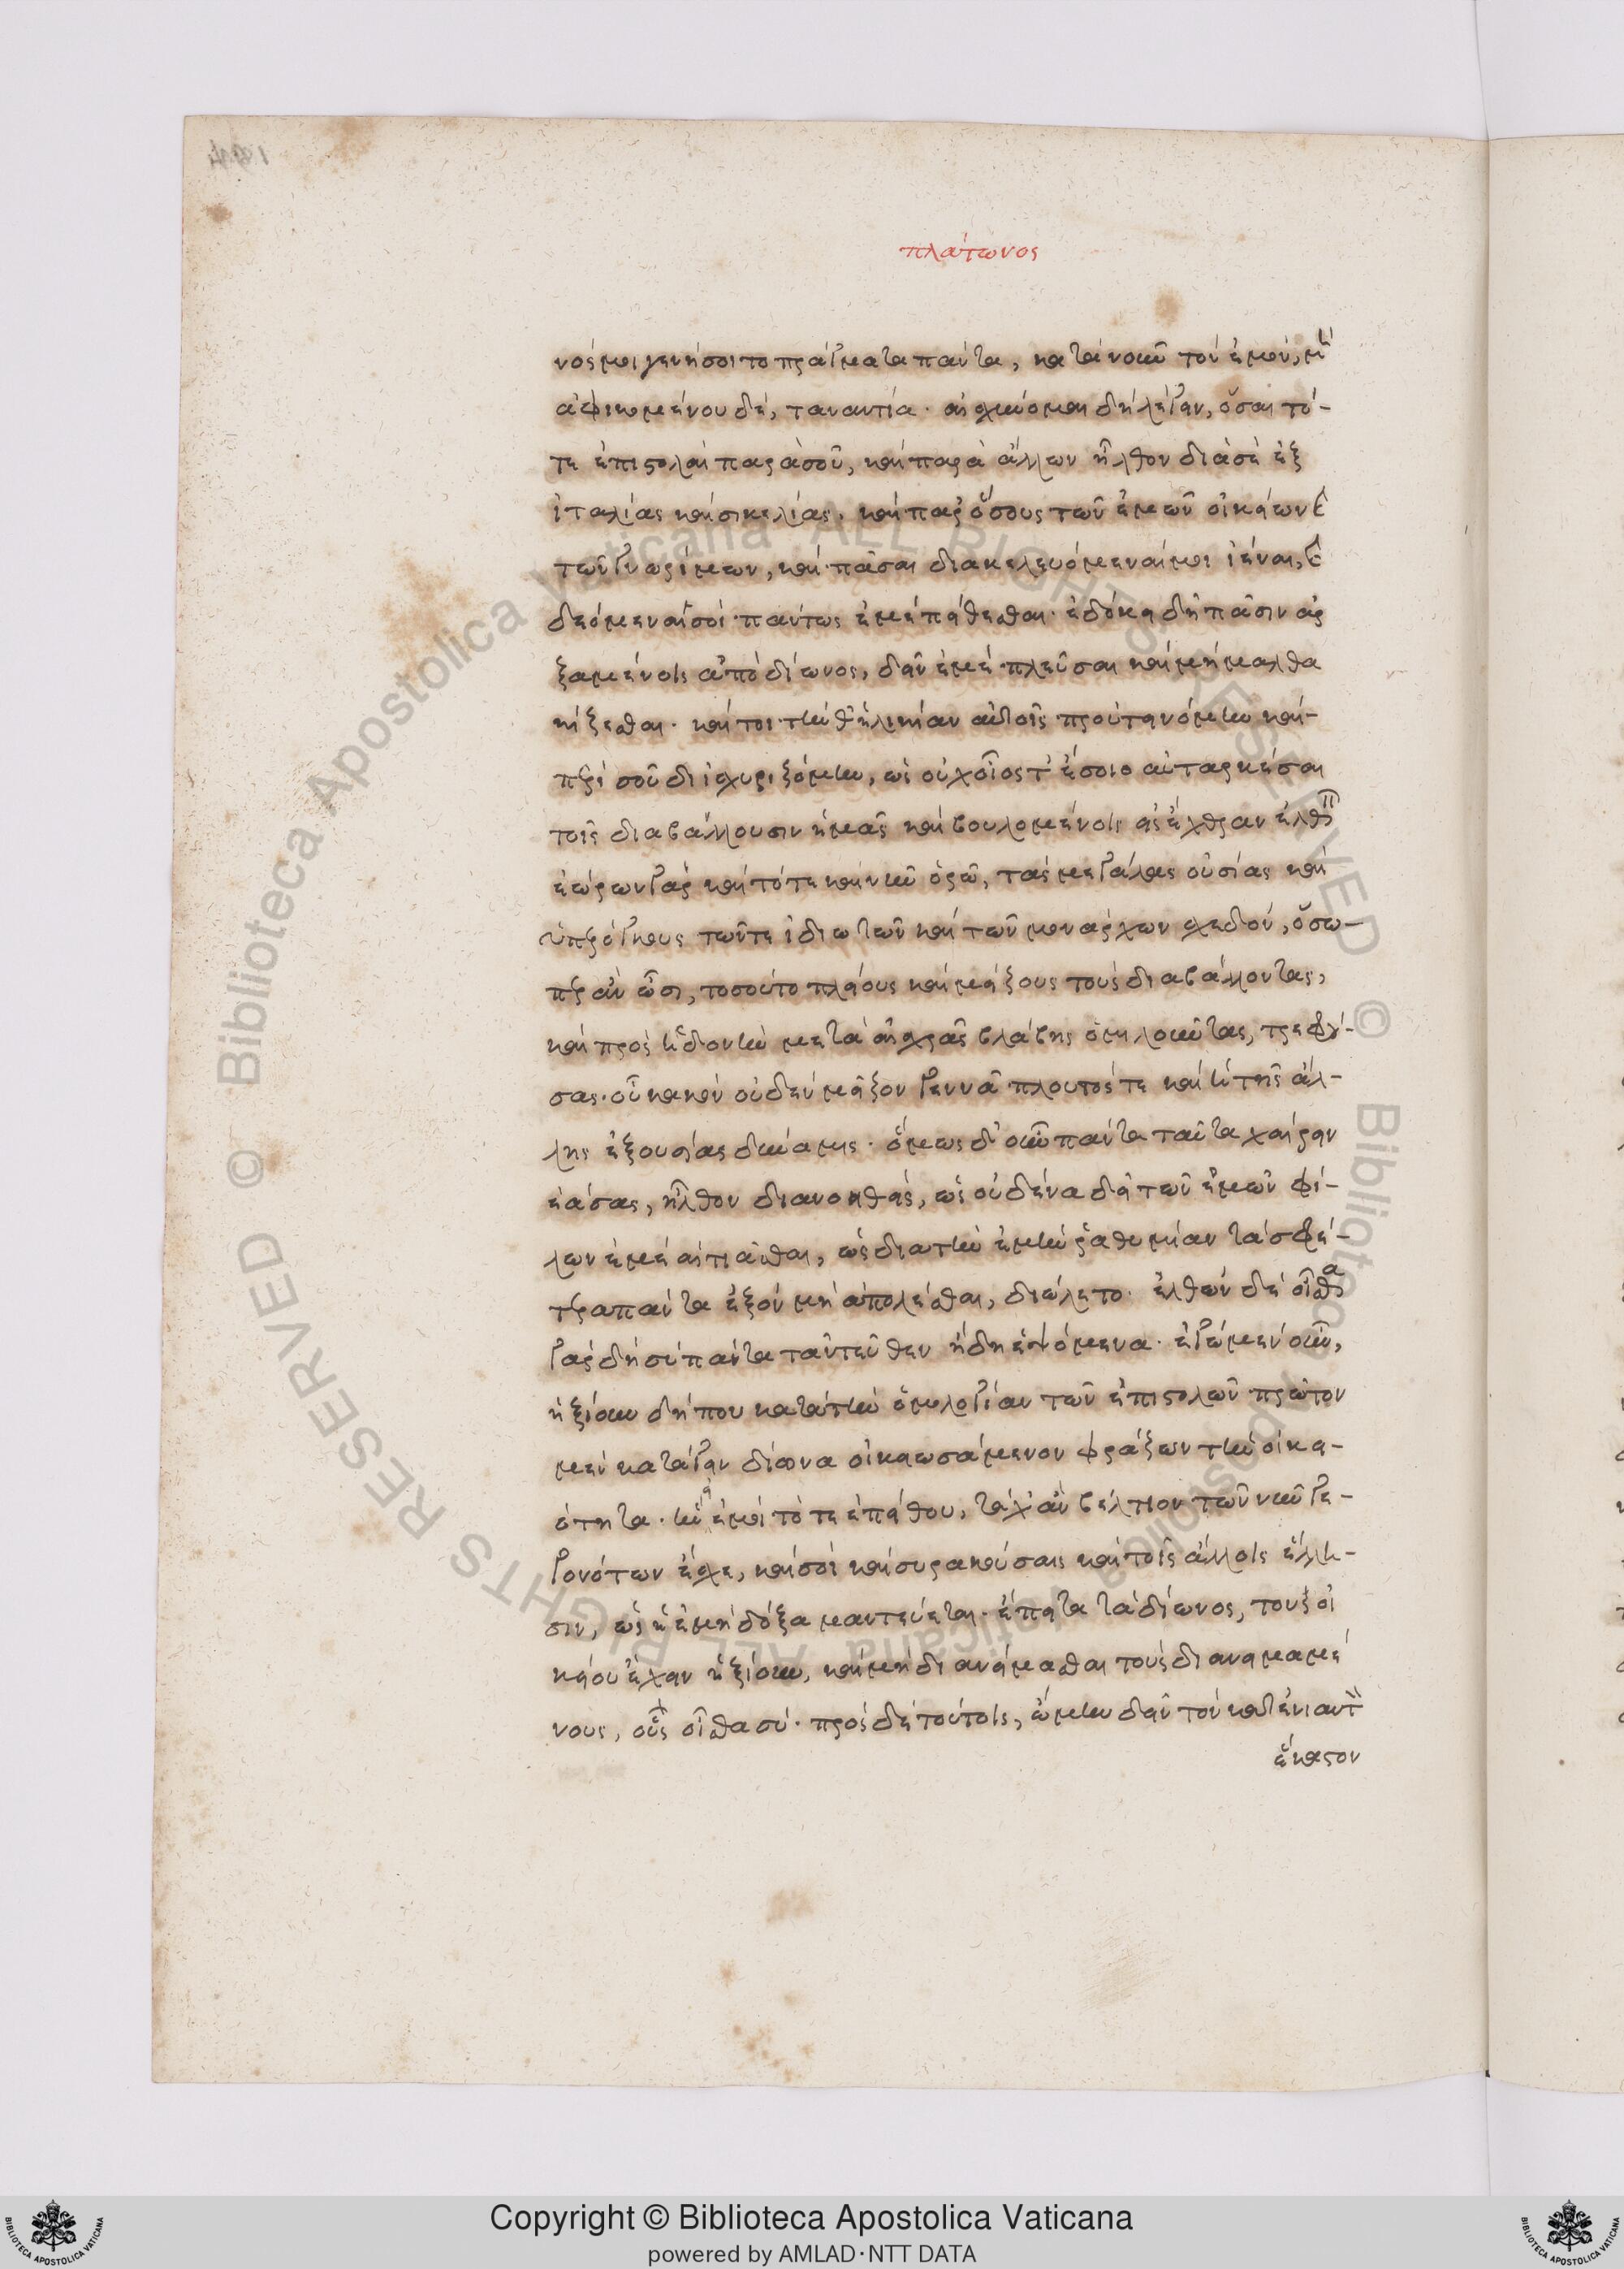 πλάτωνος
νός μοι γενήσοιτο πράγματα πάντα, κατὰ νοῦν τὸν ἐμόν, μὴ
ἀφικομένου δὲ, τἀναντία· αἰσχύνομαι δὴ λέγειν, ὅσαι τό-
τε ἐπιστολαὶ παρὰ σοῦ, καὶ παρὰ ἄλλων ἦλθον διὰ σὲ ἐξ
ἰταλίας καὶ σικελίας, καὶ παρ' ὅσους τῶν ἐμῶν οἰκείων καὶ
τῶν γνωρίμων, καὶ πᾶσαι διακελευόμεναί μοι ἰέναι, καὶ
δεόμεναί σοι πάντως ἐμὲ πείθεσθαι· ἐδόκει δὴ πᾶσιν ἀρ
ξαμένοις ἀπὸ δίωνος, δεῖν ἐμὲ πλεῦσαι καὶ μὴ μαλθα
κίζεσθαι· καί τοι τήν θ' ἡλικίαν αὐτοῖς προὐτεινόμην καὶ
περὶ σοῦ διϊσχυριζόμην, ὡς οὐχ οἷός τ' ἔσοιο αὐταρκέσαι
τοῖς διαβάλλουσιν ἡμᾶς καὶ βουλομένοις εἰς ἔχθραν ἐλθεῖν
ἑώρων γὰρ καὶ τότε καὶ νῦν ὁρῶ, τὰς μεγάλας οὐσίας καὶ
ὑπερόγκους τῶν τε ἰδιωτῶν καὶ τῶν μονάρχων σχεδόν, ὅσω-
περ ἂν ὦσι, τοσούτο πλείους καὶ μείζους τοὺς διαβάλλοντας,
καὶ πρὸς ἡδονὴν μετὰ αἰσχρᾶς βλάβης ὁμιλοῦντας, τρεφού-
σας· οὗ κακὸν οὐδὲν μεῖζον γεννᾶ πλοῦτός τε καὶ ἡ τῆς ἄλ-
λης ἐξουσίας δύναμις· ὅμως δ' οὖν πάντα ταῦτα χαίρειν
ἐάσας, ἦλθον διανοηθεὶς, ὡς οὐδένα δεῖ τῶν ἐμῶν φί-
λων ἐμὲ αἰτιᾶσθαι, ὡς διὰ τὴν ἐμὴν ῥαθυμίαν τὰ σφέ-
τερα πάντα ἐξὸν μὴ ἀπολέσθαι, διώλετο· ἐλθὼν δὲ οἶσθα
γὰρ δὴ σὺ πάντα τἀντεῦθεν ἤδη γενόμενα· ἐγὼ μὲν οὖν,
ἠξίουν δήπου κατὰ τὴν ὁμολογίαν τῶν ἐπιστολῶν πρῶτον
μὲν κατάγειν δίωνα οἰκειωσάμενον φράζων τὴν οἰκει-
ότητα· ἣν εἰ ἐμοὶ τότε ἐπείθου, τάχ' ἂν βέλτιον τῶν νῦν γε-
γονότων ἔσχε, καὶ σοὶ καὶ συρακούσαις καὶ τοῖς ἄλλοις ἕλλη-
σιν, ὡς ἡ ἐμὴ δόξα μαντεύεται· ἔπειτα τὰ δίωνος, τοὺς οἰ
κείους ἔχειν ἠξίουν, καὶ μὴ διανείμασθαι τοὺς διανειμαμέ
νους, οὓς οἶσθα σύ· πρὸς δὲ τούτοις, ᾤμην δεῖν τὸν κατ' ἐνιαυτὸν
ἕκαστον